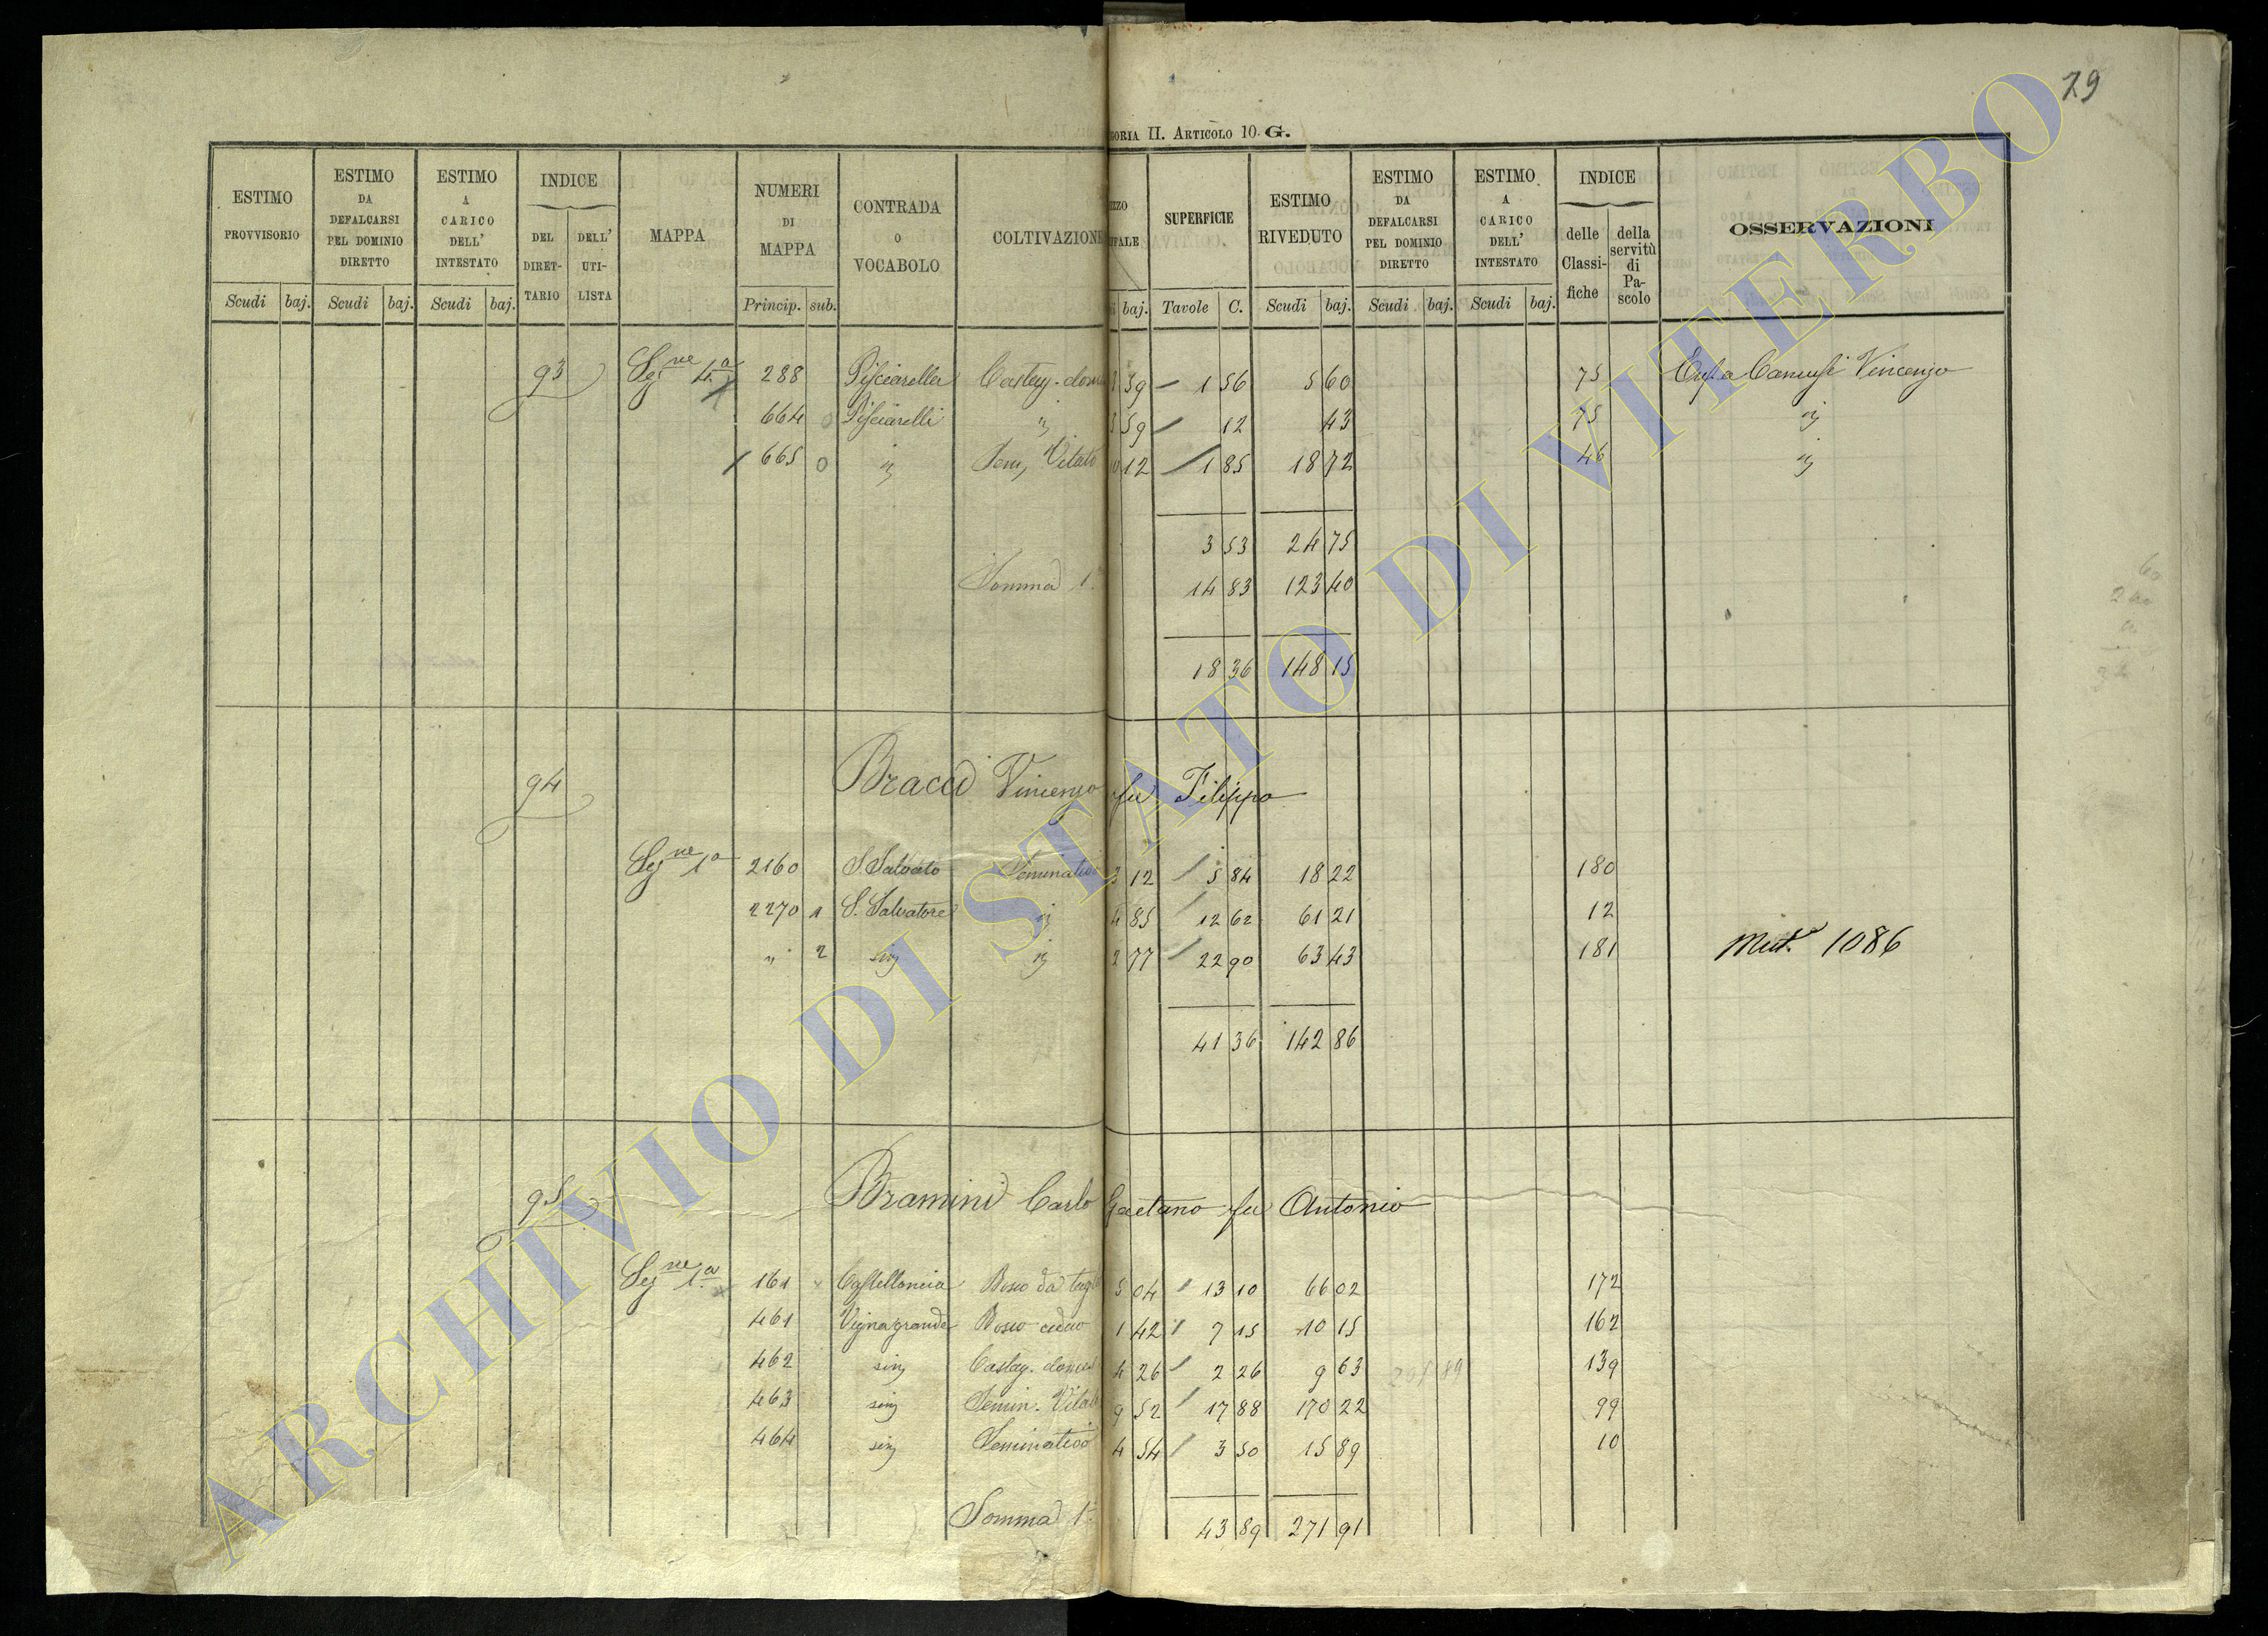 79
GORIA II. ARTICOLO 10. G.
ESTIMO PROVVISORIO Scudi baj.
ESTIMO DA DEFALCARSI PEL DOMINIO DIRETTO Scudi baj.
ESTIMO A CARICO DELL' INTESTATO Scudi baj.
INDICE DEL DIRET-TARIO DELL' UTI-LISTA
MAPPA
NUMERI DI MAPPA Princip. sub.
CONTRADA O VOCABOLO
COLTIVAZIONE
baj.
SUPERFICIE Tavole C.
ESTIMO RIVEDUTO Scudi baj.
ESTIMO DA DEFALCARSI PEL DOMINIO DIRETTO Scudi baj.
ESTIMO A CARICO DELL' INTESTATO Scudi baj.
INDICE delle Classi-fiche della servitù di Pa-scolo
OSSERVAZIONI
93 288 Pisciarella Castag. dom 39 1 56 5 60 75 Vincenzo
664 0 Pisciarelli " 59 12 43 75 "
665 0 " Sem, Vitato 12 1 85 18 72 46 "
3 53 24 75
Somma 1. 14 83 123 40
18 36 148 15
94 Bracci Vincenzo fu Filippo
Segne 1a 2160 S. Salvato Seminativo 3 12 5 84 18 22 180
2270 1 S. Salvatore " 4 85 12 62 61 21 12
" 2 " " 2 77 22 90 63 43 181 Mut. 1086
41 36 142 86
95 Bramini Carlo Gaetano fu Antonio
Segne 1.a 161 Castellancia Bosco da tagl 5 04 13 10 66 02 172
461 Vignagrande Bosco ceduo 1 42 7 15 10 15 162
462 sim Castag. domes 4 26 2 26 9 63 139
463 sim Semin. Vitat 9 52 17 88 170 22 99
464 sim Seminativo 4 54 3 50 15 89 10
Somma 1a 43 89 271 91
ARCHIVIO DI STATO DI VITERBO